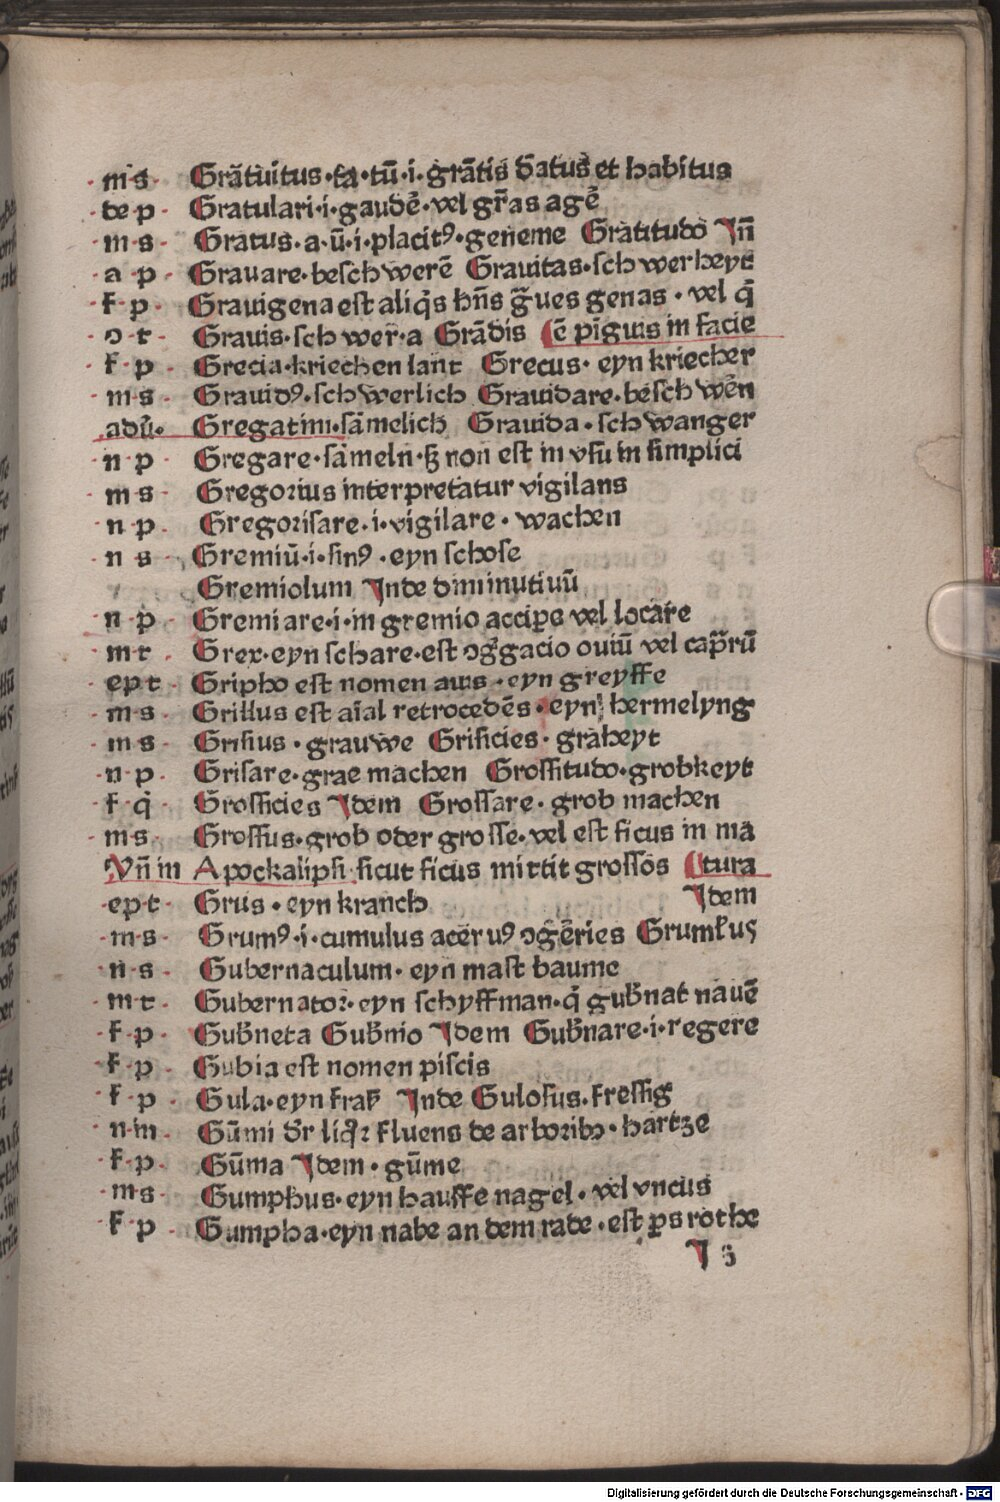 m·s· Grãtuitus·ta·tũ·i·grãtis ðatus et habitus
de p· Gratulari·i·gaudē·vel gr̃as agē
m·s· Gratus·a·ũ·i·placitꝰ·geneme Gratitudo Jn̄
a p· Grauare·beschwerē Grauitas·schwerheyt
f·p· Grauigena est aliq̃s hñs g̃ues genas·vel q̃
ↄ·t· Grauis·schwer·a Grãdis (ē pĩguis in facie
f·p· Grecia·kriechen lant Grecus·eyn kriecher
m·s· Grauidꝰ·schwerlich Grauidare·beschwēn
adũ· Gregatim·sãmelich Grauida·schwanger
n p· Gregare·sãmeln·ꝫ non est in vsu in simplici
m s· Gregorius interpretatur vigilans
n p· Gregorisare·i·vigilare·wachen
n s· Gremiũ·i·sinꝰ·eyn schose
Gremiolum Jnde diminutiuũ
n p· Gremiare·i·in gremio accipe vel locare
m t· Grex·eyn schare·est ↄg̃gacio ouiũ vel cap̃rũ
ep t· Gripho est nomen auis·eyn greyffe
m s· Grillus est aĩal retrocedēs·eyn hermelyng
m s· Grisius·grauwe Grisicies·graheyt
n p· Grisare·grae machen Grossitudo·grobkeyt
f q̃· Grossicies Jdem Grossare·grob machen
m s· Grossus·grob oder grosse·vel est ficus in ma
Vñ in Apockalipsi·sicut ficus mittit grossos (tura
ep·t· Grus·eyn kranch Jdem
m·s· Grumꝰ·i·cumulus aceruꝰ ↄgēries Grumłus
n s· Gubernaculum·eyn mast baume
m·t· Gubernator·eyn schyffman·q̃ gub̃nat nauē
f·p· Gub̃neta Gub̃nio Jdem Gub̃nare·i·regere
f p· Gubia est nomen piscis
f p· Gula·eyn fraß Jnde Gulosus·fressig
n·m· Gũmi dr̃ liq̃ꝛ fluens de arboribꝰ·hartze
f·p· Gũma Jdem·gũme
m s· Gumphus·eyn hauffe nagel·vel vncus
f p Gumpha·eyn nabe an dem rade·est ꝑs rothe
J 3
Digitalisierung gefördert durch die Deutsche Forschungsgemeinschaft - DFG